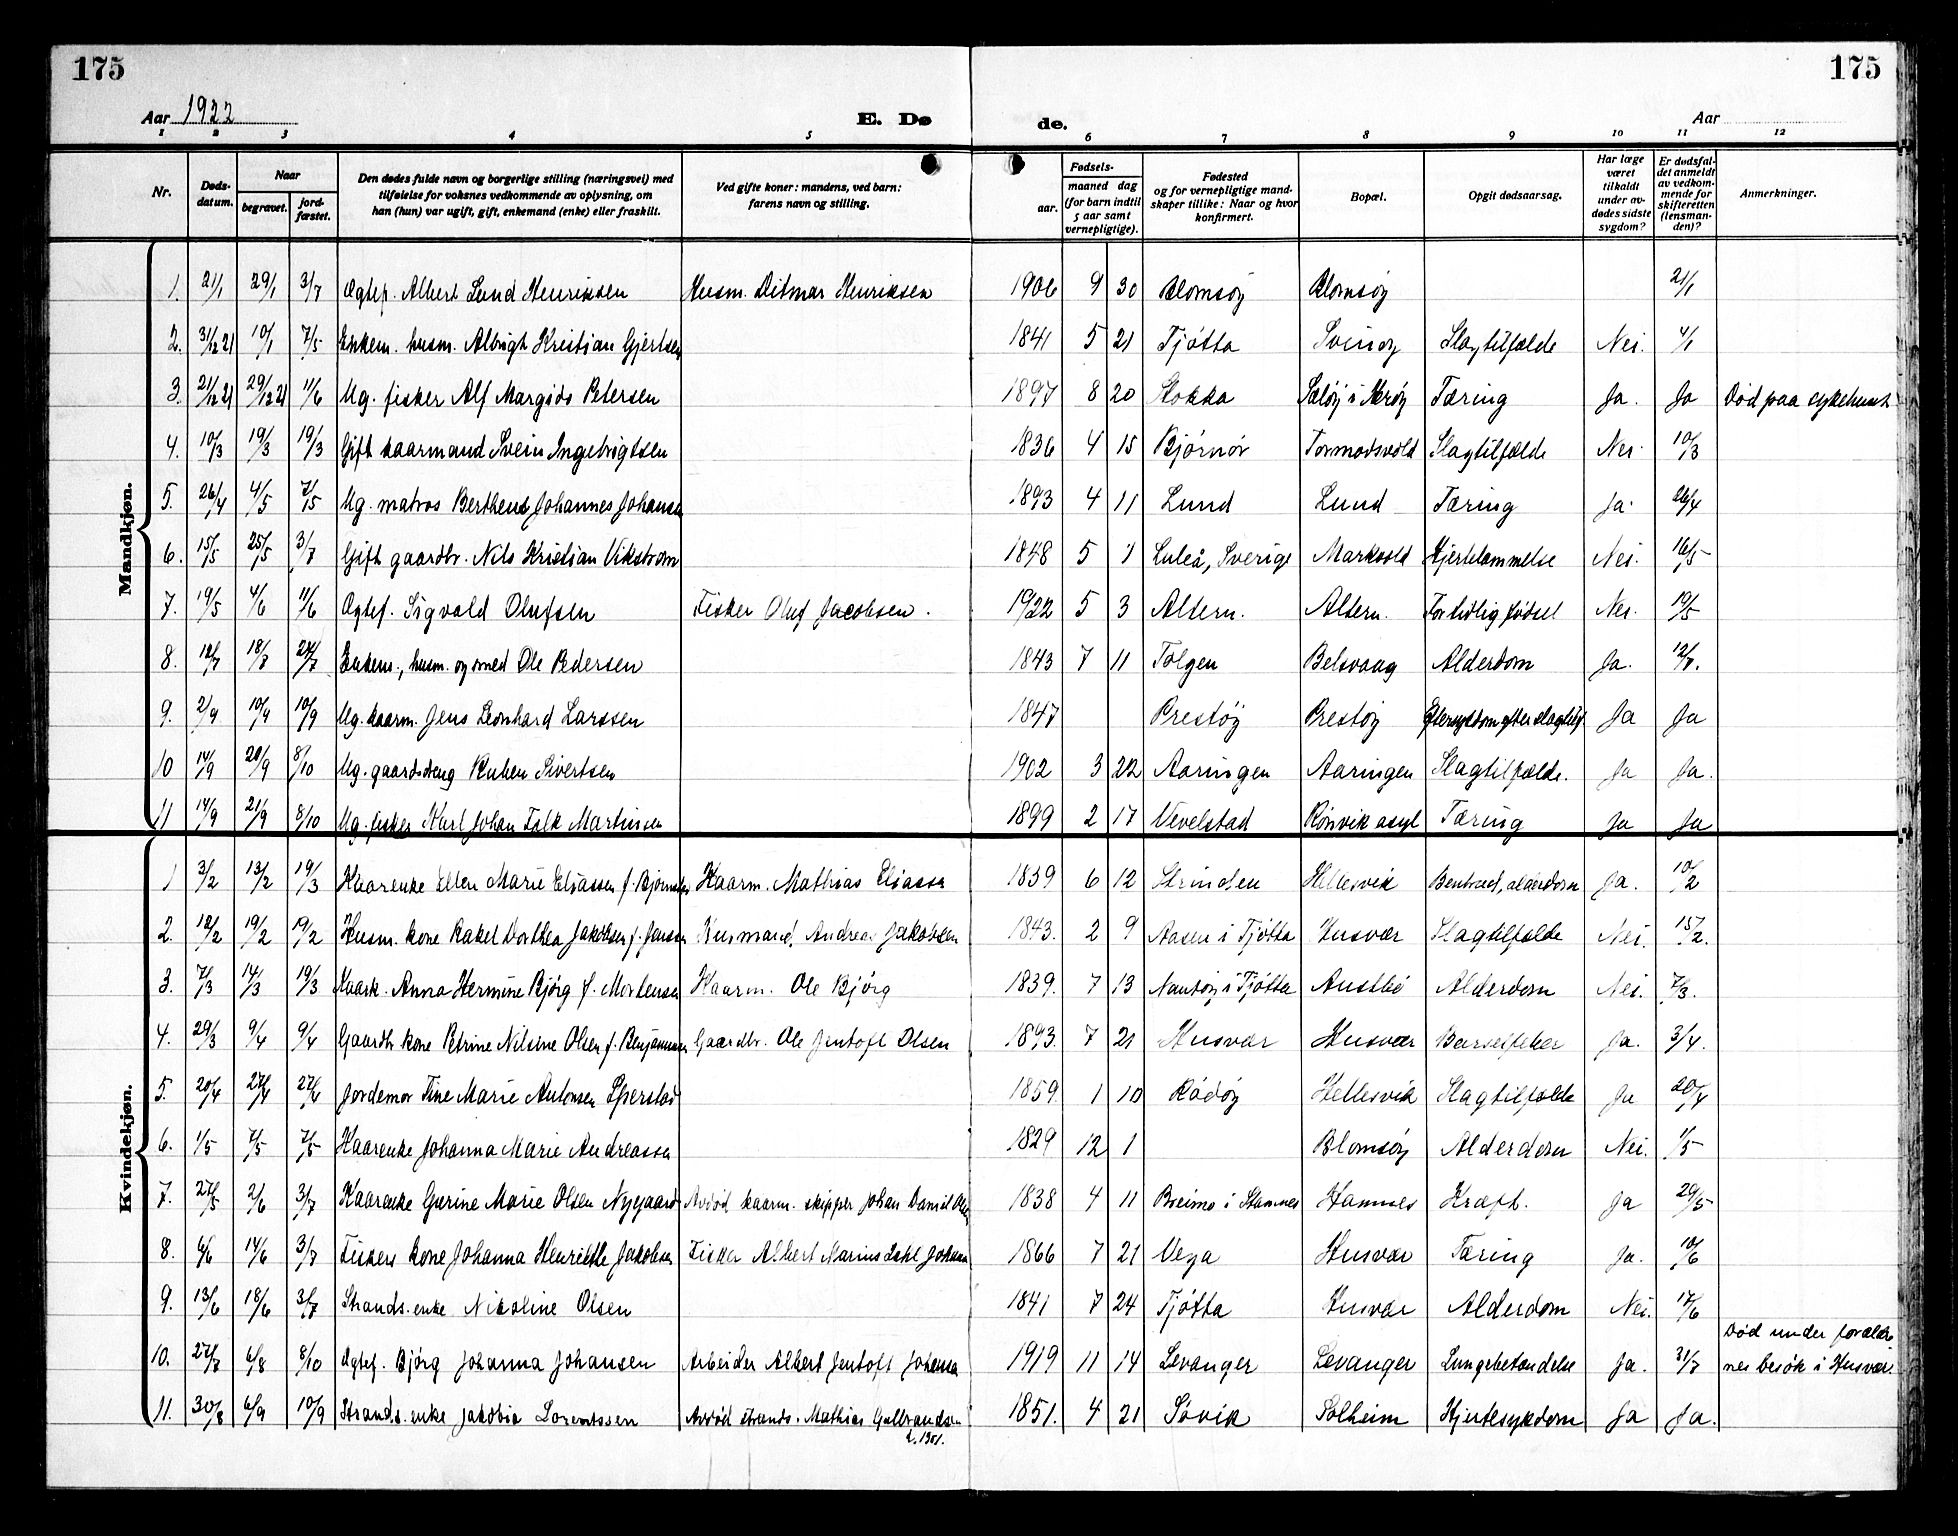 175
175
Aar 1922
E. Dø
de.
Aar
1 2 3 4 5 6 7 8 9 10 11 12
Nr.
Døds-
datum.
Naar
begravet.
jord-
fæstet.
Den dødes fulde navn og borgerlige stilling (næringsvei) med
tilføielse for voksnes vedkommende av oplysning, om
han (hun) var ugift, gift, enkemand (enke) eller fraskilt.
Ved gifte koner: mandens, ved barn:
farens navn og stilling.
Fødsels-
aar.
maaned dag
(for barn indtil
5 aar samt
vernepligtige).
Fødested
og for vernepligtige mand-
skaper tillike: Naar og hvor
konfirmert.
Bopæl.
Opgit dødsaarsag.
Har læge
været
tilkaldt
under av-
dødes sidste
sygdom?
Er dødsfal-
det anmeldt
av vedkom-
mende for
skifteretten
(lensman-
den)?
Anmerkninger.
Mandkjøn.
1. 21/1 29/1 3/7 Ogtef. Albert Lund Henriksen Husm. Ditmar Henriksen 1906 9 30 Blomsøy Blomsøy 21/1
2. 31/12 21 10/1 7/5 Enkem. husm. Albrigt Kristian Gjertsen 1841 5 21 Tjøtta Svinøy Slagtilfælde Nei. 4/1
3. 21/12 21 29/12 21 11/6 Ug. fisker Alf Margido Petersen 1897 8 20 Stokka Sæløy i Herøy Tæring Ja. Ja Død paa sykehuset
4. 10/3 19/3 19/3 Gift kaarmand Svein Ingebrigtsen 1836 4 15 Bjørnør Tormodsvold Slagtilfælde Nei. 10/3
5. 26/4 4/5 7/5 Ug. matros Bertheus Johannes Johansen 1893 4 11 Lund Lund Tæring Ja. 26/4
6. 15/5 25/5 3/7 Gift gaardbr. Nils Kristian Vikstrøm 1848 5 1 Luleå, Sverige Markvold Hjertelammelse Nei. 16/5
7. 19/5 4/6 11/6 Ogtef. Sigvald Olufsen Fisker Oluf Jacobsen. 1922 5 3 Altern. Altern. For tidlig fødsel Nei. 19/5
8. 12/7 18/7 24/7 Enkem., husm. og smed Ole Pedersen 1843 7 11 Tolgen Belsvaag Alderdom Ja. 12/7.
9. 2/9 10/9 10/9 Ug. kaarm. Jens Leonhard Larssen 1847 Prestøy Prestøy Ja Ja
10 14/9 20/9 8/10 Ug. gaardsdreng Ruben Sivertsen 1902 3 22 Aaringen Aaringen Slagtilfælde. Ja Ja.
11 14/9 21/9 8/10 Ug. fisker Karl Johan Falk Martinsen 1899 2 17 Vevelstad Rønvik asyl Tæring Ja Ja
Kvindekjøn.
1 3/2 13/2 19/3 Kaarenke Ellen Marie Eliassen f. Kaarm. Mathias Eliassen 1839 6 12 Strinden Hellesvik Benbrud, alderdom Ja. 10/2
2. 12/2 19/2 19/2 Husm. kone Rakel Dorthea Jakobsen f. Jensen Husmand, Andreas Jakobsen 1843. 2 9 Aasen i Tjøtta Husvær Slagtilfælde Nei. 15/2.
3. 7/3 14/3 19/3 Kaark. Anna Hermine Bjørg f. Mortensen Kaarm. Ole Bjørg 1839. 7 13 i Tjøtta Austbø Alderdom Nei. 7/3.
4. 29/3 9/4 9/4 Gaardbr. kone Petrine Nilsine Olsen f. Benjaminsen Gaardbr. Ole Jentoft Olsen 1893. 7 21 Husvær Husvær Barselfeber Ja. 3/4.
5. 20/4 27/4 27/4 Jordemor Tine Marie Antonsen 1859. 1 10 Rødøy Hellesvik Slagtilfælde Ja 20/4
6. 1/5 7/5 7/5 Kaarenke Johanna Marie Andreassen 1829 12 1 Blomsøy Alderdom Nei. 1/5
7. 27/5 2/6 3/7 Kaarenke Gurine Marie Olsen Nygaard Avdød kaarm. skipper Johan Daniel Olsen 1838 4 11 Breimo i Stamnes Hamnes Kræft. Ja 29/5
8. 6/6 14/6 3/7 Fiskers kone Johanna Henriette Jakobsen Fisker Albert Marius Johansen 1866 7 21 Vega Husvær Tæring Ja. 10/6
9. 13/6 18/6 3/7 Strands. enke Nikoline Olsen 1841 7 24 Tjøtta Husvær Alderdom Nei. 17/6
10. 27/7 6/8 8/10 Ogtef. Bjørg Johanna Johansen Arbeider Albert Jentoft Johansen 1919 11 14 Levanger Levanger Lungebetændelse Ja. 31/7 Død under foræld-
nes besøk i Husvær.
11. 30/8 6/9 10/9 Strands. enke Jakobia Lorentssen Avdød strands. Mathias Gulbrandsen 1851. 4 21 Søvik Solheim Hjertesykdom Ja Ja.
d. 1901.